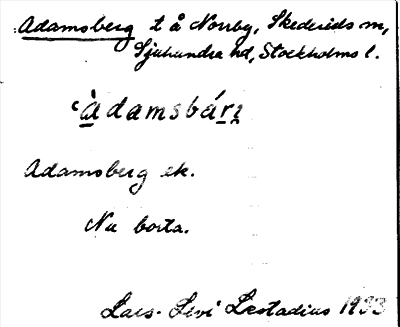 Adamsberg t å Norrby, Skederids m,
Sjuhundra hd, Stockholms l.
‘àdamsbárȷ
Adamsberg ek.
Nu borta.
Lars-Levi Læstadius 1933